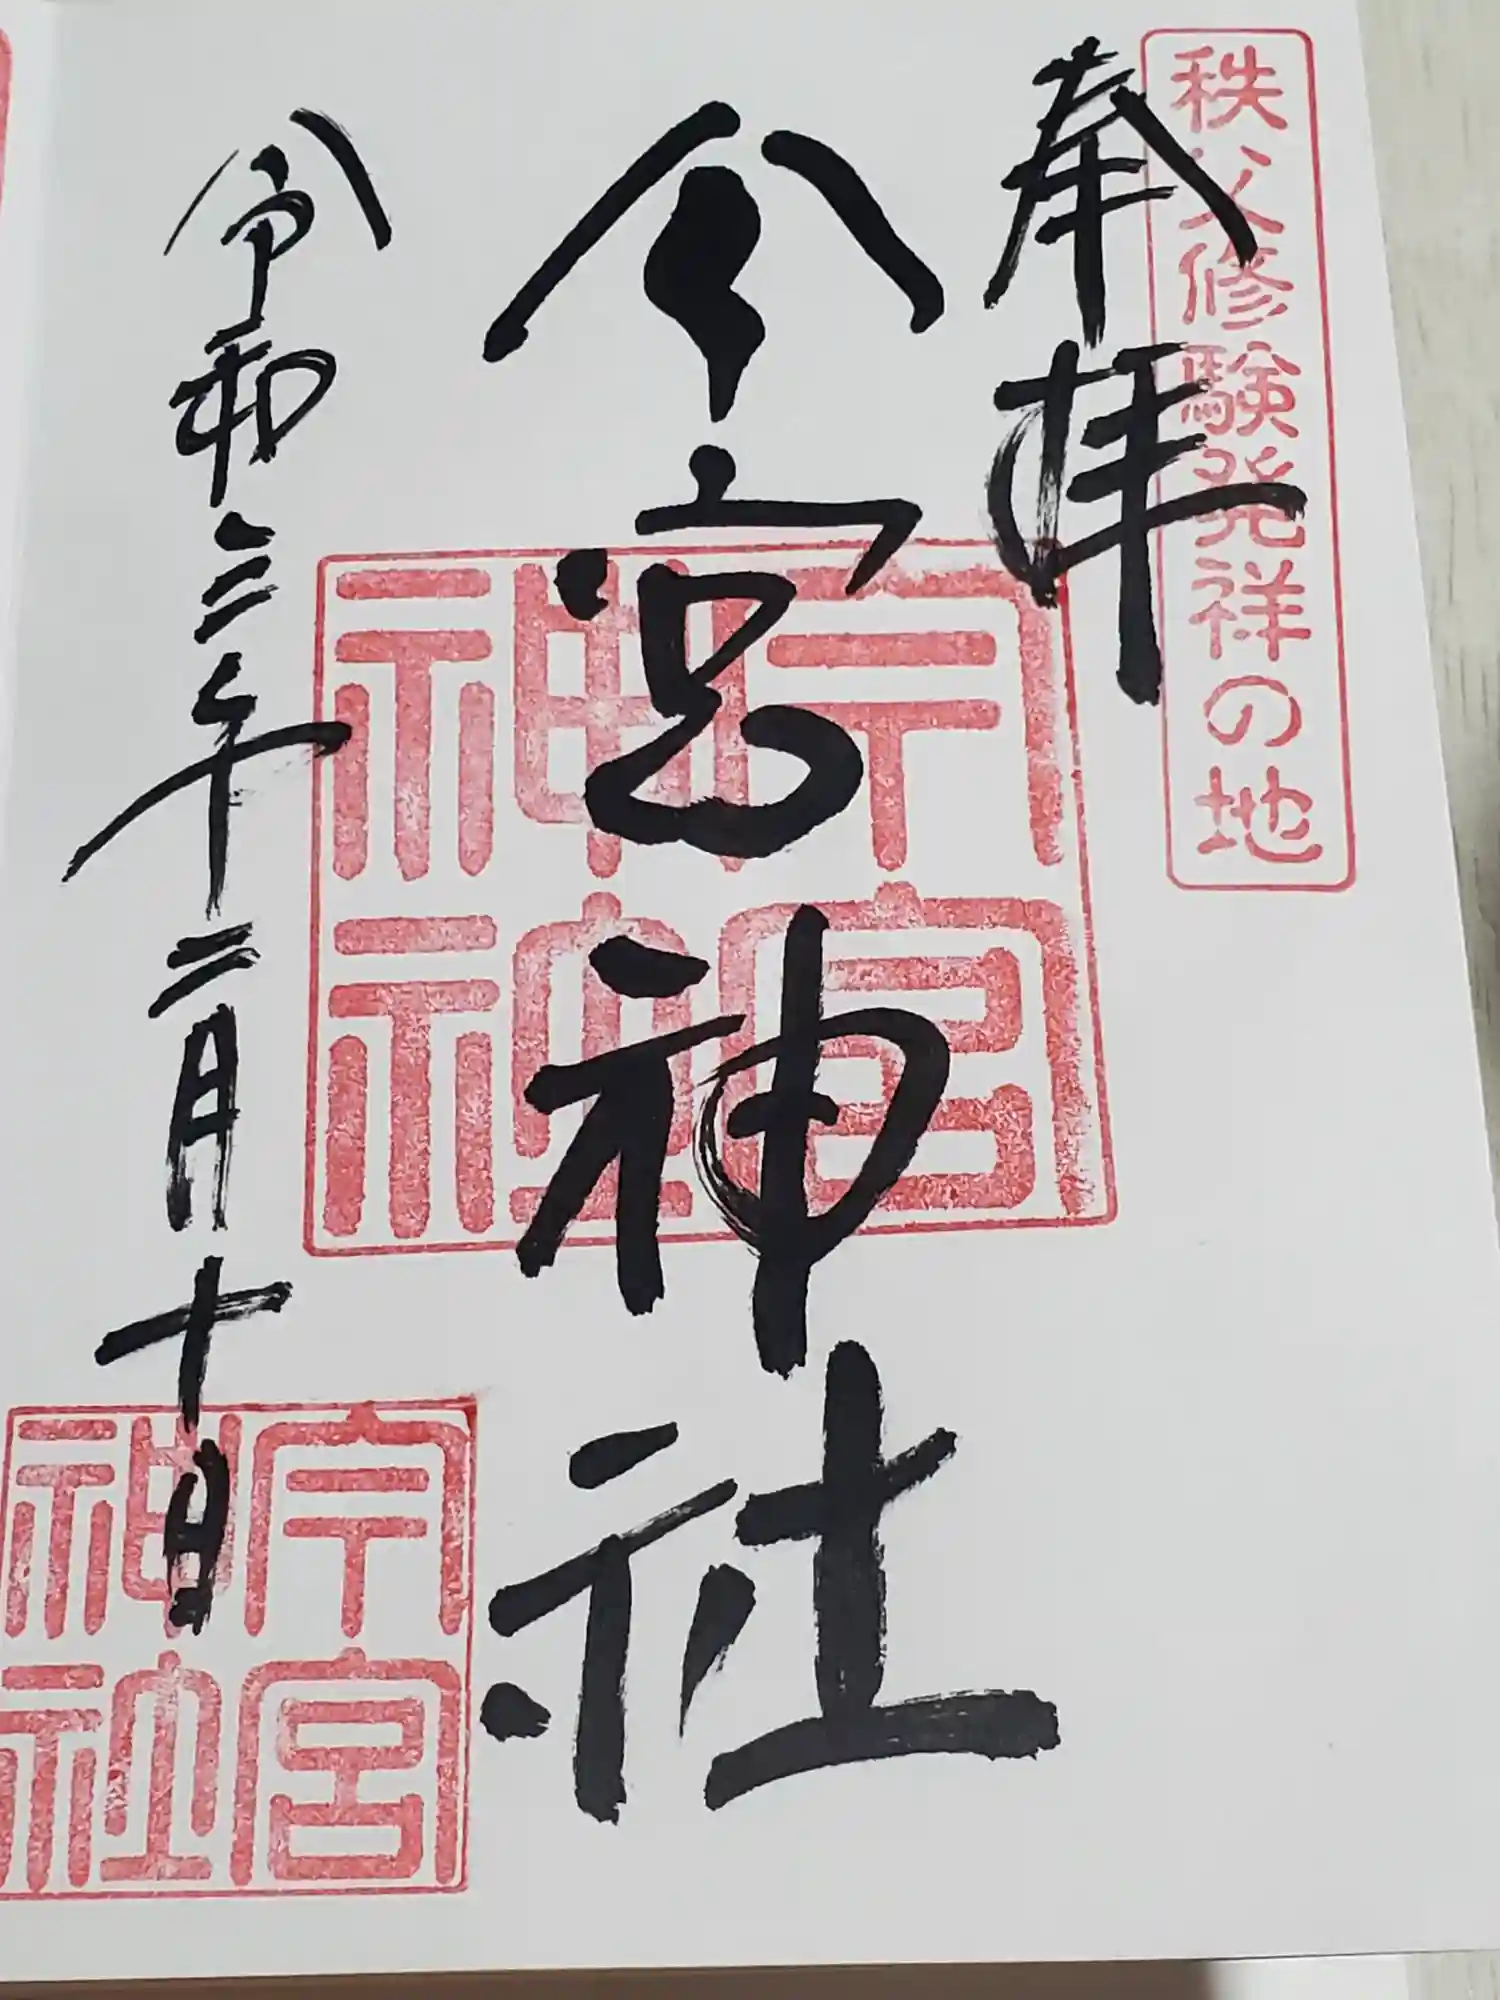 秩父修験発祥の地
奉拝
今宮神社
今宮
神社
令和三年二月十日
今宮
神社